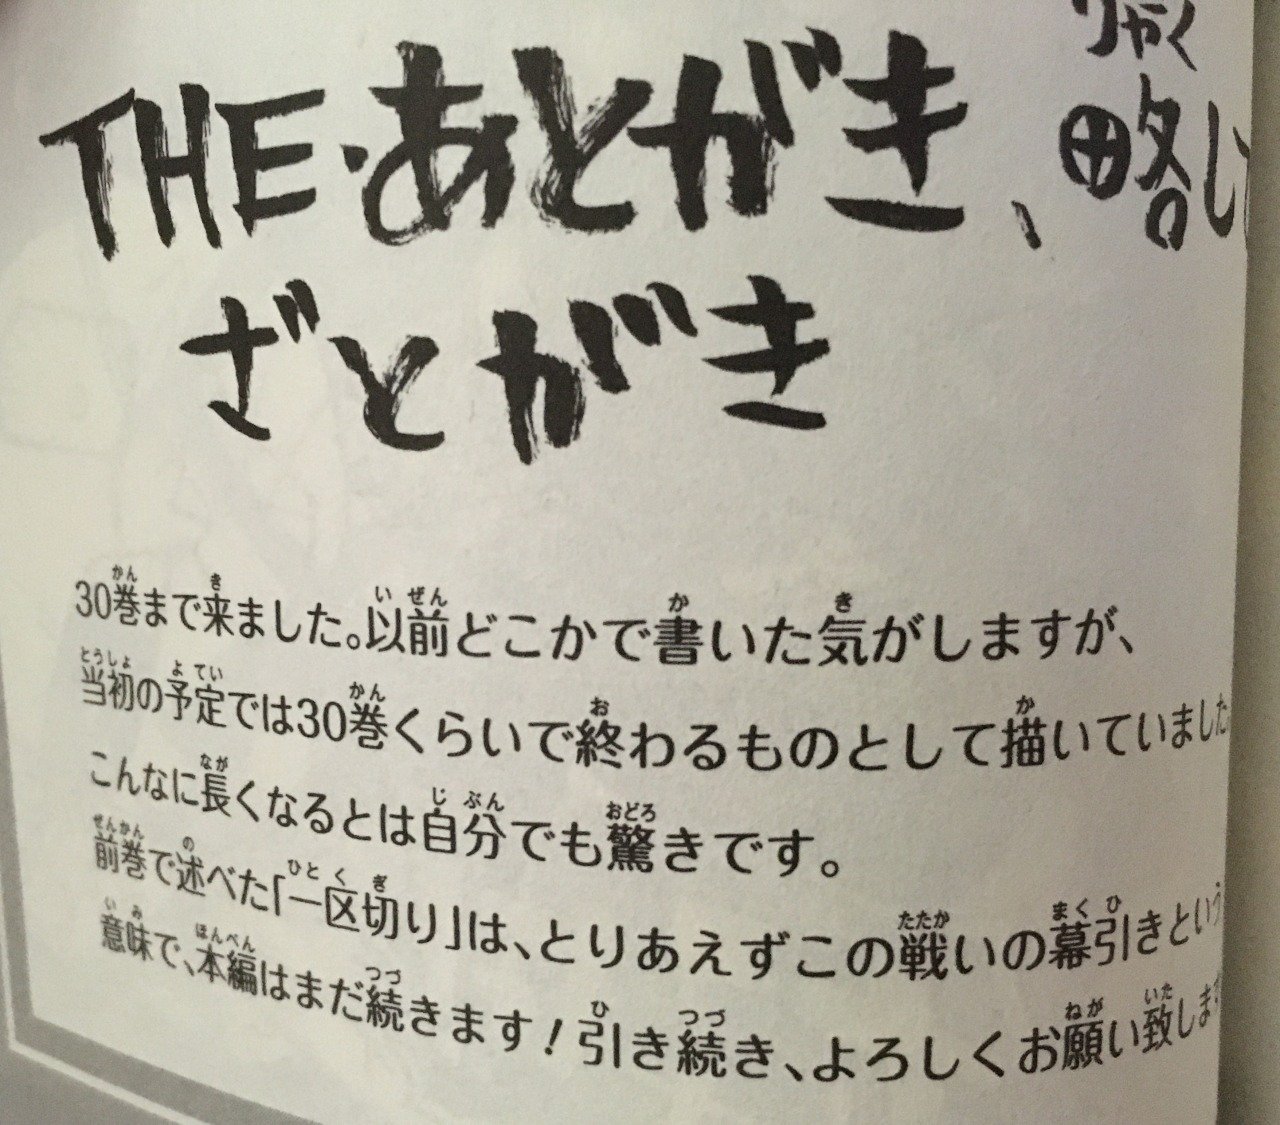 THE・あとがき、略して
ざとがき
30巻まで来ました。以前どこかで書いた気がしますが、
当初の予定では30巻くらいで終わるものとして描いていました
こんなに長くなるとは自分でも驚きです。
前巻で述べた「一区切り」は、とりあえずこの戦いの幕引きという
意味で、本編はまだ続きます！引き続き、よろしくお願い致します